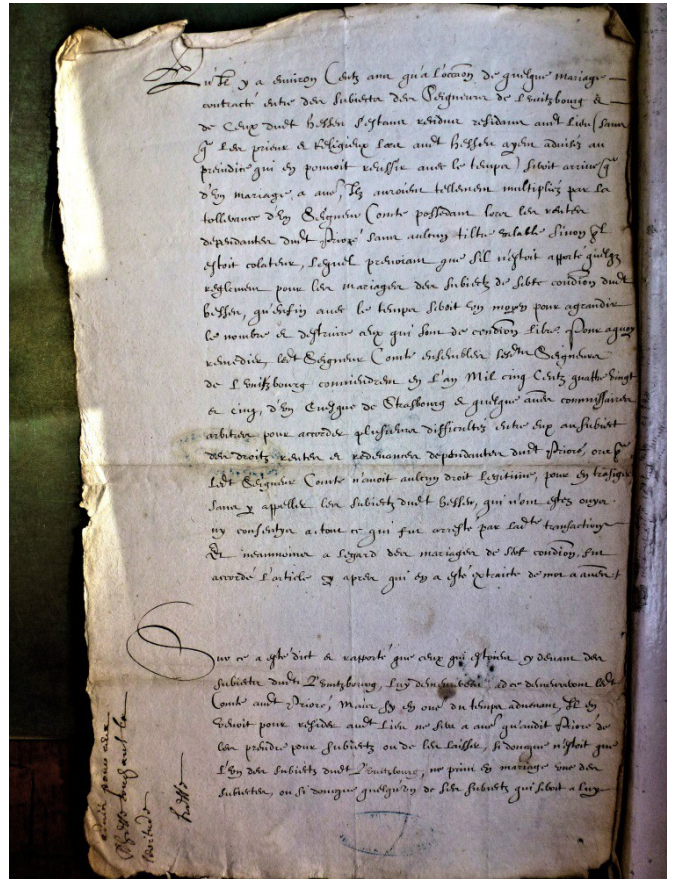 Qu'il y a environ Centz ans qu'a l'occaõn de quelque mariage
contracté entre des subiects des Seigneurs de Lenitzbourg &
de Ceux dudt Hessen s'estans rendus residans audt Lieu (sans
q̃ les prieur & Religieux lors audt Hessen ayent advisez au
preiudice qui en pouvoit reussir avec le temps) seroit arrivé q̃
d'un mariage a autre, Ilz auroient tellement multipliez par la
tollerance d'un Seigneur Comte possedant lors les rentes
dependantes dudt Prioré sans aulcun tiltre valable sinon q̃l
estoit colateur, Lequel prevoiant que s'il n'estoit apporté quelq̃
reglement pour les mariages des subiectz de serte condiõn dudt
Hessen, qu'enfin avec le temps seroit un moyen pour agrandir
le nombre & destruire ceux qui sont de condiõn libre. Pour a quoy
remedier, Ledt Seigneur Comte ensembles lesdts Seigneurs
de Lenitzbourg conviendrent en l'an Mil cinq Centz quattre vingt
& cinq, d'un Evesque de Strasbourg & quelque autres commissaires
arbitres pour accorder plusieurs difficultez entre eux au subiect
des droitz rentes & redevances dependantes dudt Prioré, ores q̃
Ledt Seigneur Comte n'avoit aulcun droit Legitime, pour en trãsiger
sans y appeller les subiectz dudt Hessen, qui n'ont estez ouys
ny consentys a tout ce qui fut arresté par ladte transaction
Et neanmoins a l'egard des mariages de ladt condiõn, fut
accordé l'article cy apres qui en a esté extraicte de mot a autre
Sur ce a esté dict & rapporté que ceux qui estoient cy devant des
subiects dudt Lenitzbourg, Luy demeurent ad ce demeureront ledt
Comte audt Prioré, Mais sy en cas du temps advenant, Il en
venoit pour resider audt Lieu ne sera a autre qu'audit Prioré de
les prendre pour subiectz ou de les laisser, si doncque n'estoit que
L'un des subiectz dudt Lenitzbourg, ne print en mariage une des
subiectes, ou si doncque quelqu'un de ses subiectz qui seroit a luy
touchant la